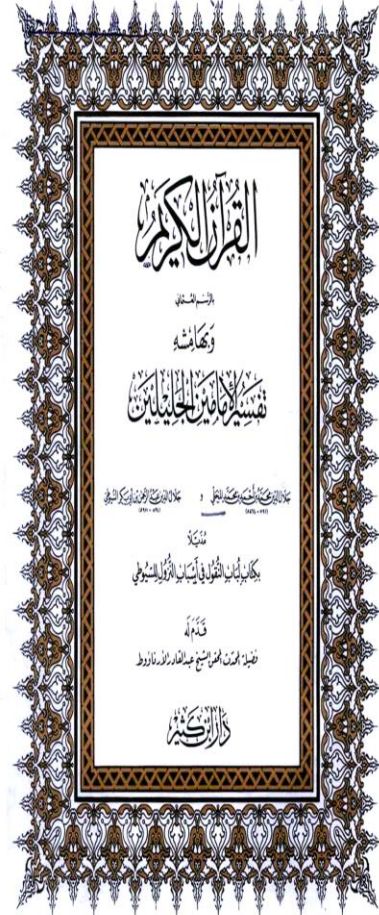 القُرآنُ الكَرِيمُ
بالرَّسمِ العُثماني
وبهَامِشْهِ
تفسِيرُ الإمَامَينِ الجَلِيلَينِ
جلال الدين محمد بن أحمد بن محمد المحلي و جلال الدين عبد الرحمن بن أبي بكر السيوطي
مُذَيَّلاً
بكتاب لُبَابِ النُّقُول في أَسبَابِ النُّزُولِ للسّيُوطي
قَدَّمَ لَه
فضيلة المحدث المحقق الشيخ عبد القادر الأرناؤوط
دَارُ ابن كَثير